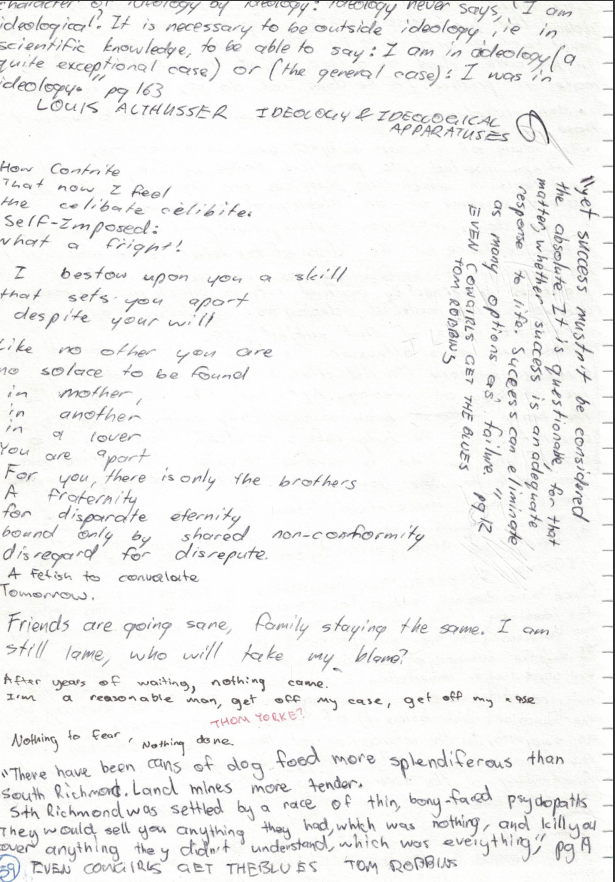 character of ideology by ideology: ideology never says, "I am
ideological". It is necessary to be outside ideology, ie in
scientific knowledge, to be able to say: I am in adeology (a
quite exceptional case) or (the general case): I was in
ideology." pg 163
LOUIS ALTHUSSER IDEOLOGY & IDEOLOGICAL
APPARATUSES
How Contrite
That now I feel
the celibate celibite.
Self-Imposed:
what a fright!
I bestow upon you a skill
that sets you apart
despite your will
Like no other you are
no solace to be found
in mother,
in another
in a lover
You are apart
For you, there is only the brothers
A fraternity
for disparate eternity
bound only by shared non-conformity
disregard for disrepute.
A Fetish to
Tomorrow.
"yet success mustn't be considered
the absolute. It is questionable, for that
matter, whether success is an adequate
response to life. Success can eliminate
as many options as failure."
EVEN COWGIRLS GET THE BLUES pg 12
TOM ROBBINS
Friends are going sane, family staying the same. I am
still lame, who will take my blame?
After years of waiting, nothing came.
I'm a reasonable man, get off my case, get off my case
THOM YORKE?
Nothing to fear, Nothing done.
"There have been cans of dog food more splendiferous than
South Richmond. Land mines more tender.
Sth Richmond was settled by a race of thin, bony-faced psychopaths
They would sell you anything they had, which was nothing, and kill you
over anything they didn't understand, which was everything," pg
59 EVEN COWGIRLS GET THE BLUES TOM ROBBINS